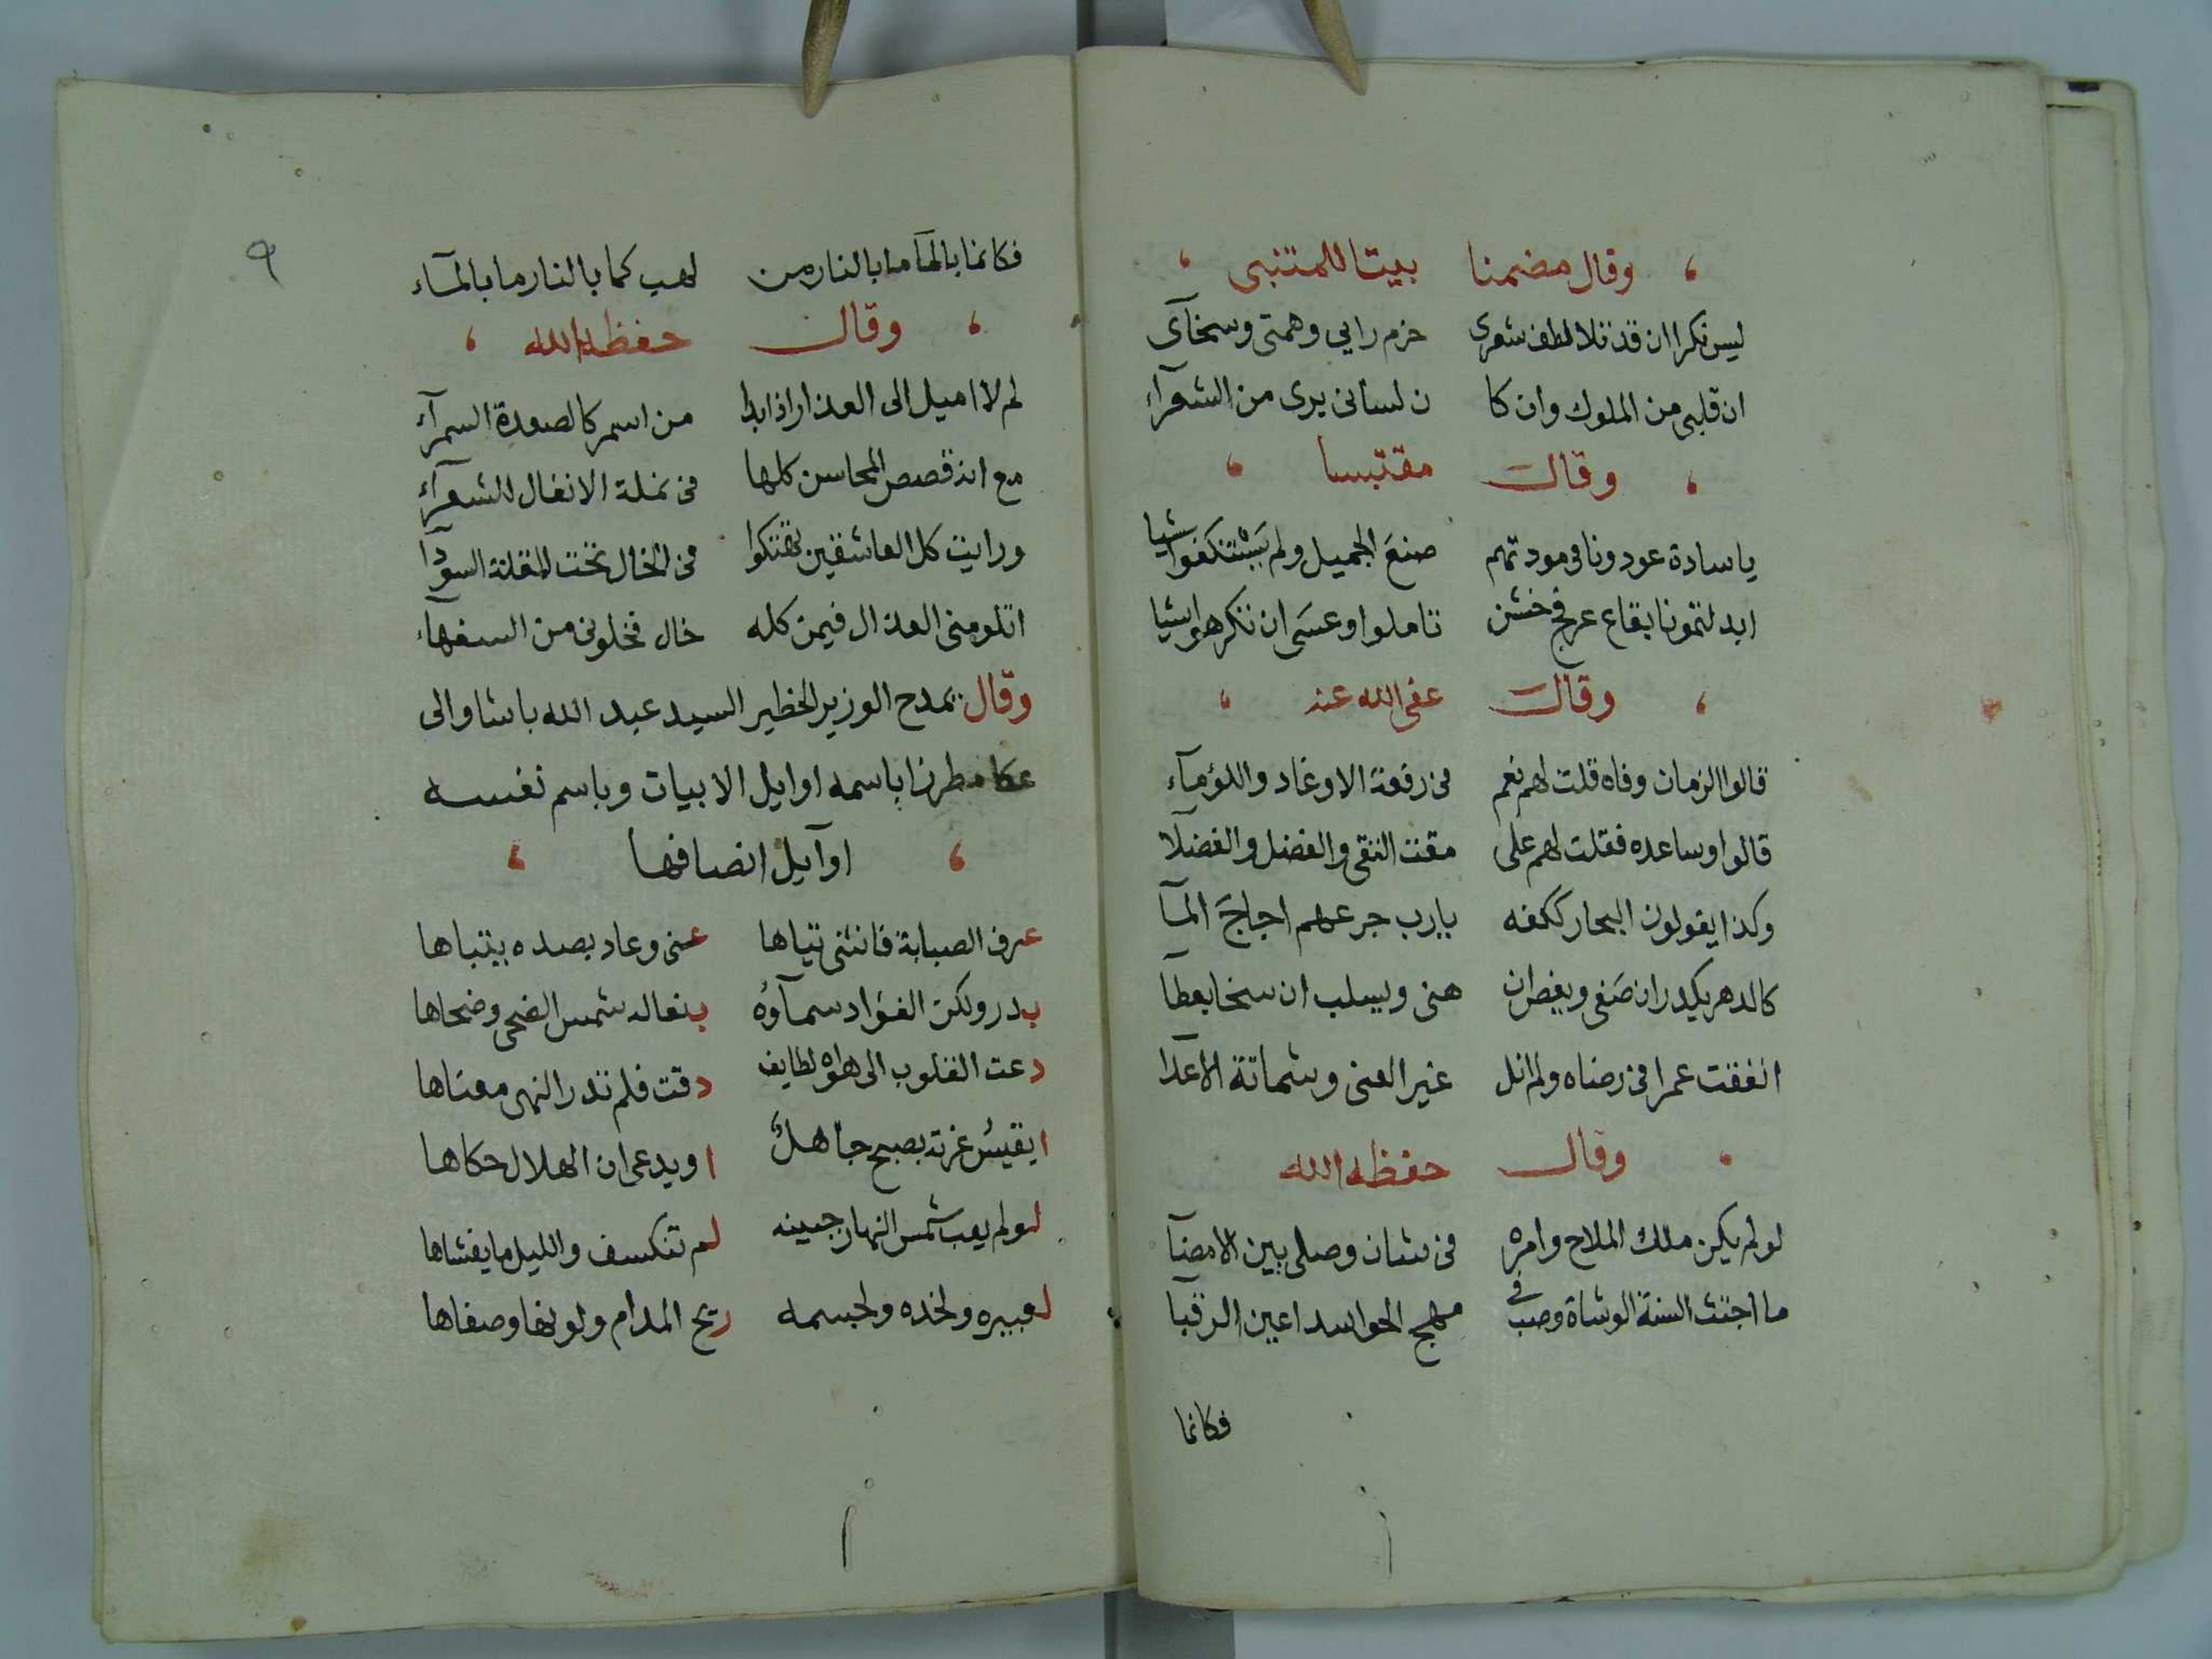 وقال مضمنا بيتا للمتنبى
ليس نكرا ان قد تلا لطف شعرى حزم رايي وهمتى وسخآى
ان قلبى من الملوك وان كا ن لسانى يرى من الشعرآء
وقال مقتبسا
يا سادة عودونا فى مودتهم صنع الجميل ولم يستنكفوا شيا
ابدلتمونا بقاع عرفج خشن تاملوا وعسى ان تكرهوا شيا
وقال عفى الله عنه
قالوا الزمان وفاه قلت لهم نعم فى رفعة الاوغاد واللؤمآء
قالوا وساعده فقلت لهم على مقت التقى والفضل والفضلآ
وكذا يقولون البحار ككفه يارب جرعهم اجاج المآ
كالدهر يكدر ان صفى ويغص ان هنى ويسلب ان سخا بعطآ
انفقت عمرا فى رضاه ولم انل غير العنى وشماتة الاعدآ
وقال حفظه الله
لو لم يكن ملك الملاح وامره فى شان وصلى بين الامضآ
ما اجتث السنة الوشاة وصب فى مهج الحواسد اعين الرقبا
فكانما
٩
فكانما بالمآ ما بالنار من لهب كما بالنار ما بالمآء
وقال حفظه الله
لم لا اميل الى العذار اذا بدا من اسمر كالصعدة السمرآء
مع انه قصص المحاسن كلها فى نملة الانفال للشعرآء
ورايت كل العاشقين تهتكوا فى الخال تحت المقلة السودآ
اتلومنى العذال فيمن كله خال فخلونى من السفهآء
وقال يمدح الوزير الخطير السيد عبد الله باشا والى
عكا مطرزا باسمه اوايل الابيات وباسم نفسه
اوآيل انصافها
عرف الصبابة فانثنى تياها عنى وعاد بصده يتباها
بدر ولكن الفؤاد سمآؤه بنعاله شمس الضحى وضحاها
دعت القلوب الى هواه لطايف دقت فلم تدر النهى معناها
ايقيس غرته بصبح جاهل او يدعى ان الهلال حكاها
لو لم يعب شمس النهار جبينه لم تنكسف والليل ما يغشاها
لعبيره ولخده ولجسمه ريح المدام ولونها وصفاها